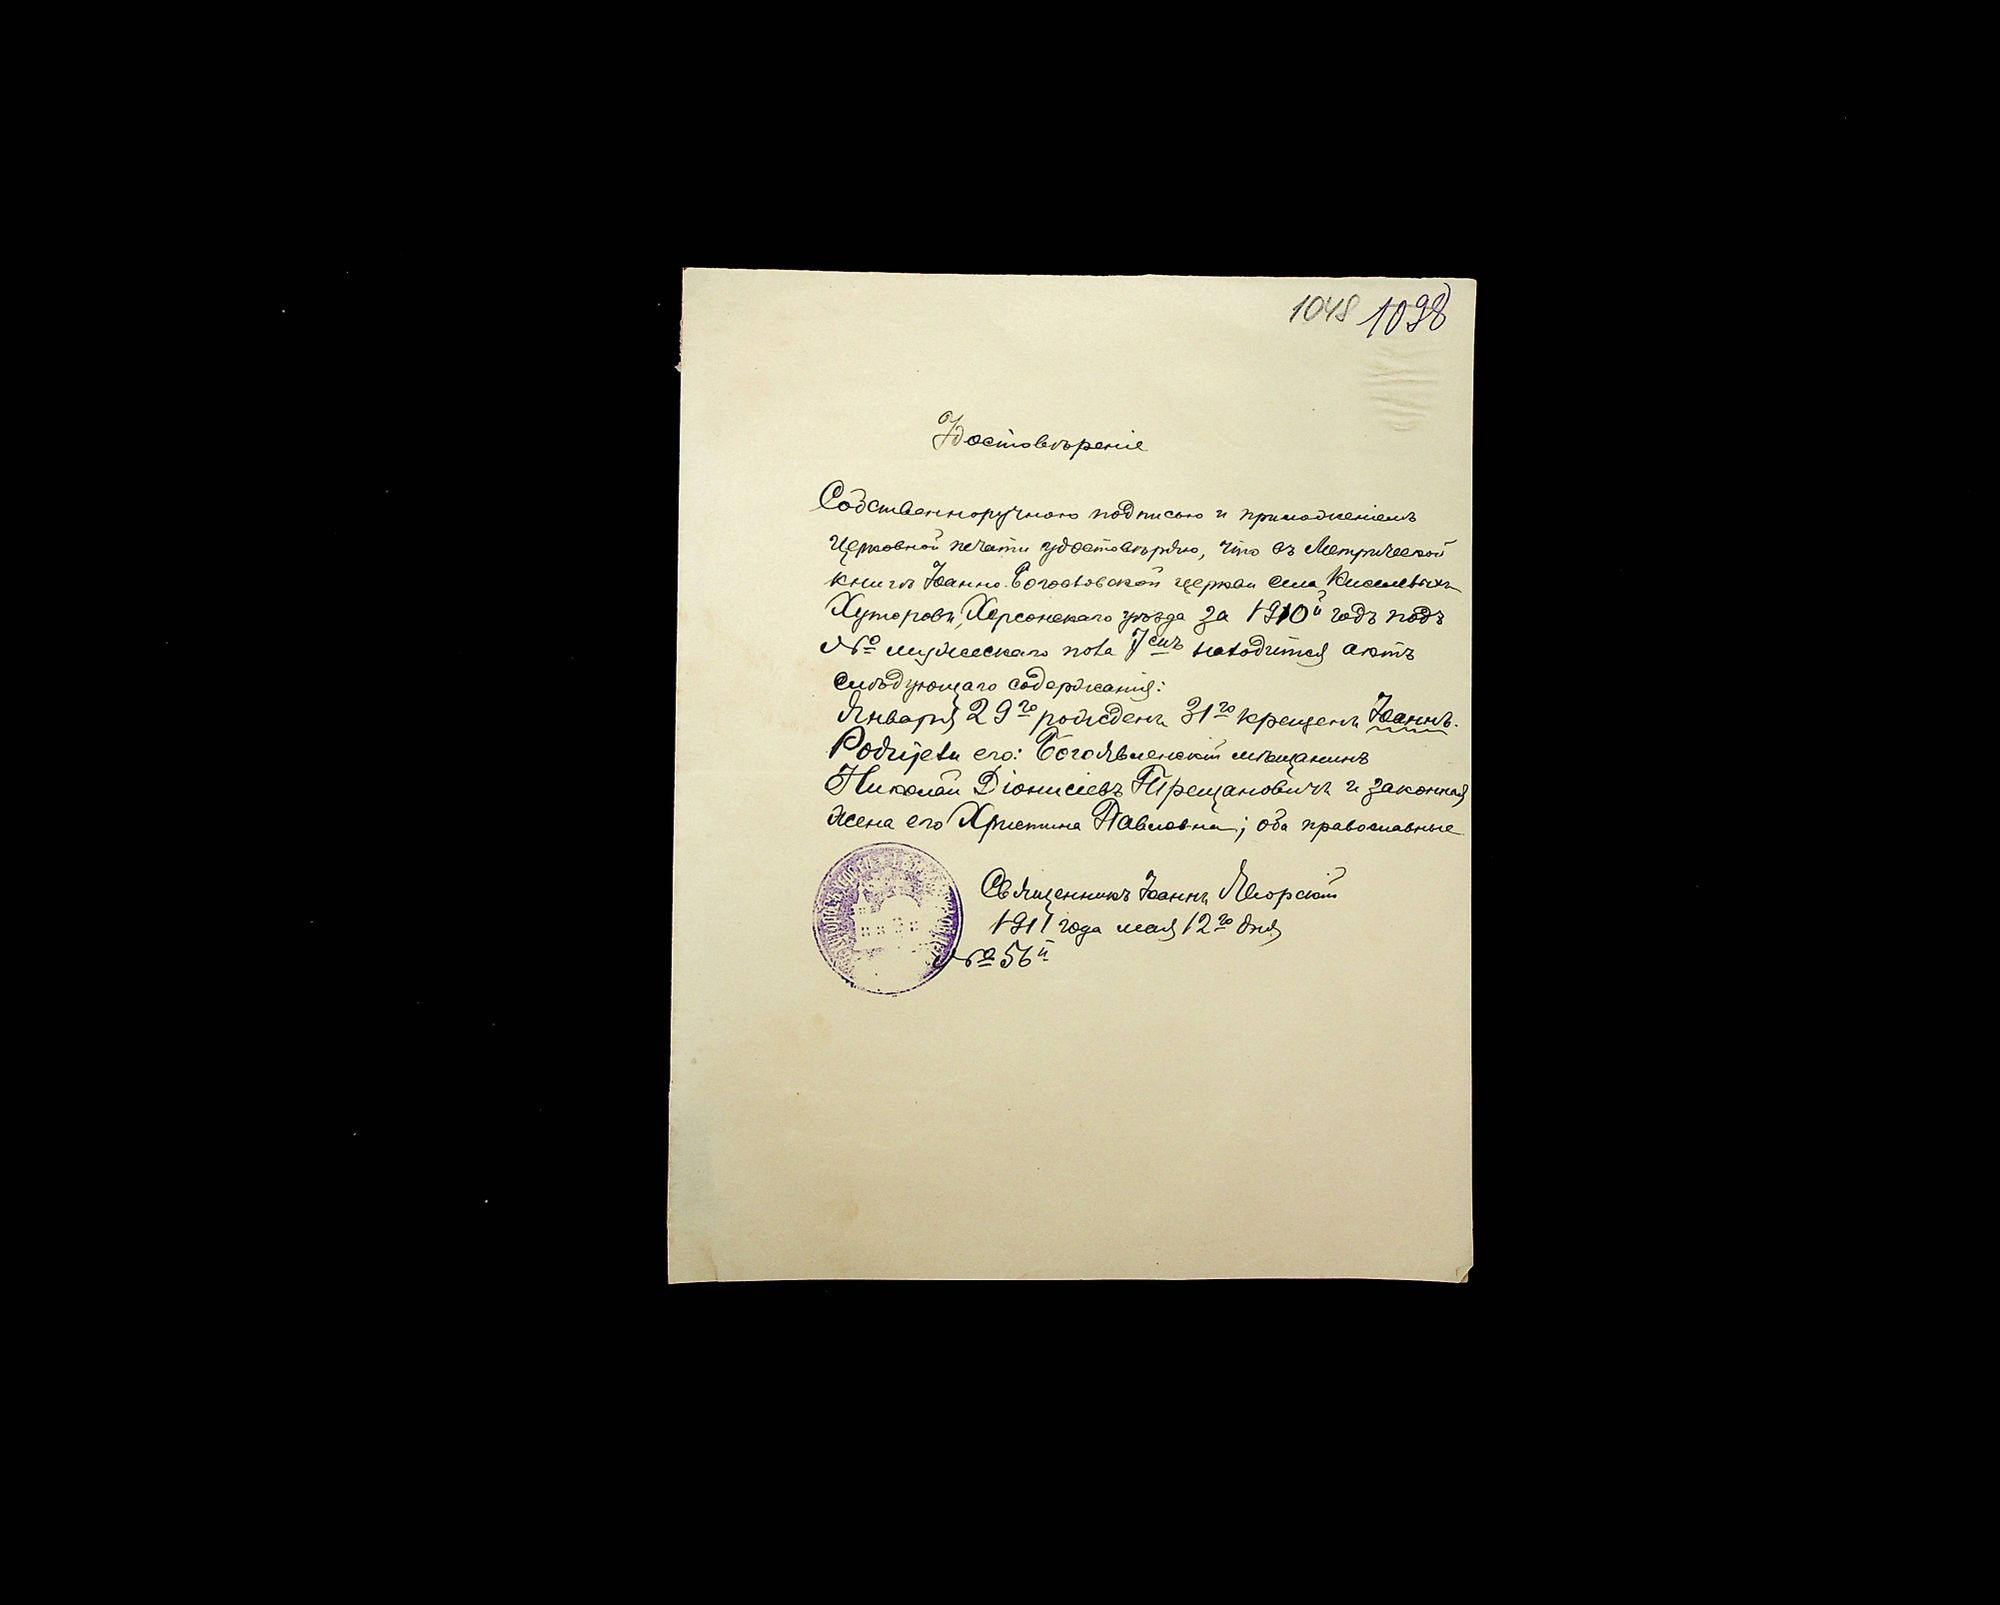 1048 1098
Удостовѣреніе
Собственноручною подписью и приложеніемъ
церковной печати удостовѣряю, что въ Метрической
книгѣ Іоанно-Богословской церкви села Киселевыхъ
Хуторовъ, Херсонскаго уѣзда за 1910й годъ подъ
№ мужескаго пола 7емъ находится актъ
слѣдующаго содержанія:
Января 29го рожденъ 31го крещенъ Іоаннъ.
Родители его: Богоявленскій мѣщанинъ
Николай Діонисіевъ Трещановичъ и законная
жена его Христина Павловна; оба православные
Священникъ Іоаннъ
1911 года мая 12го дня
№ 56й